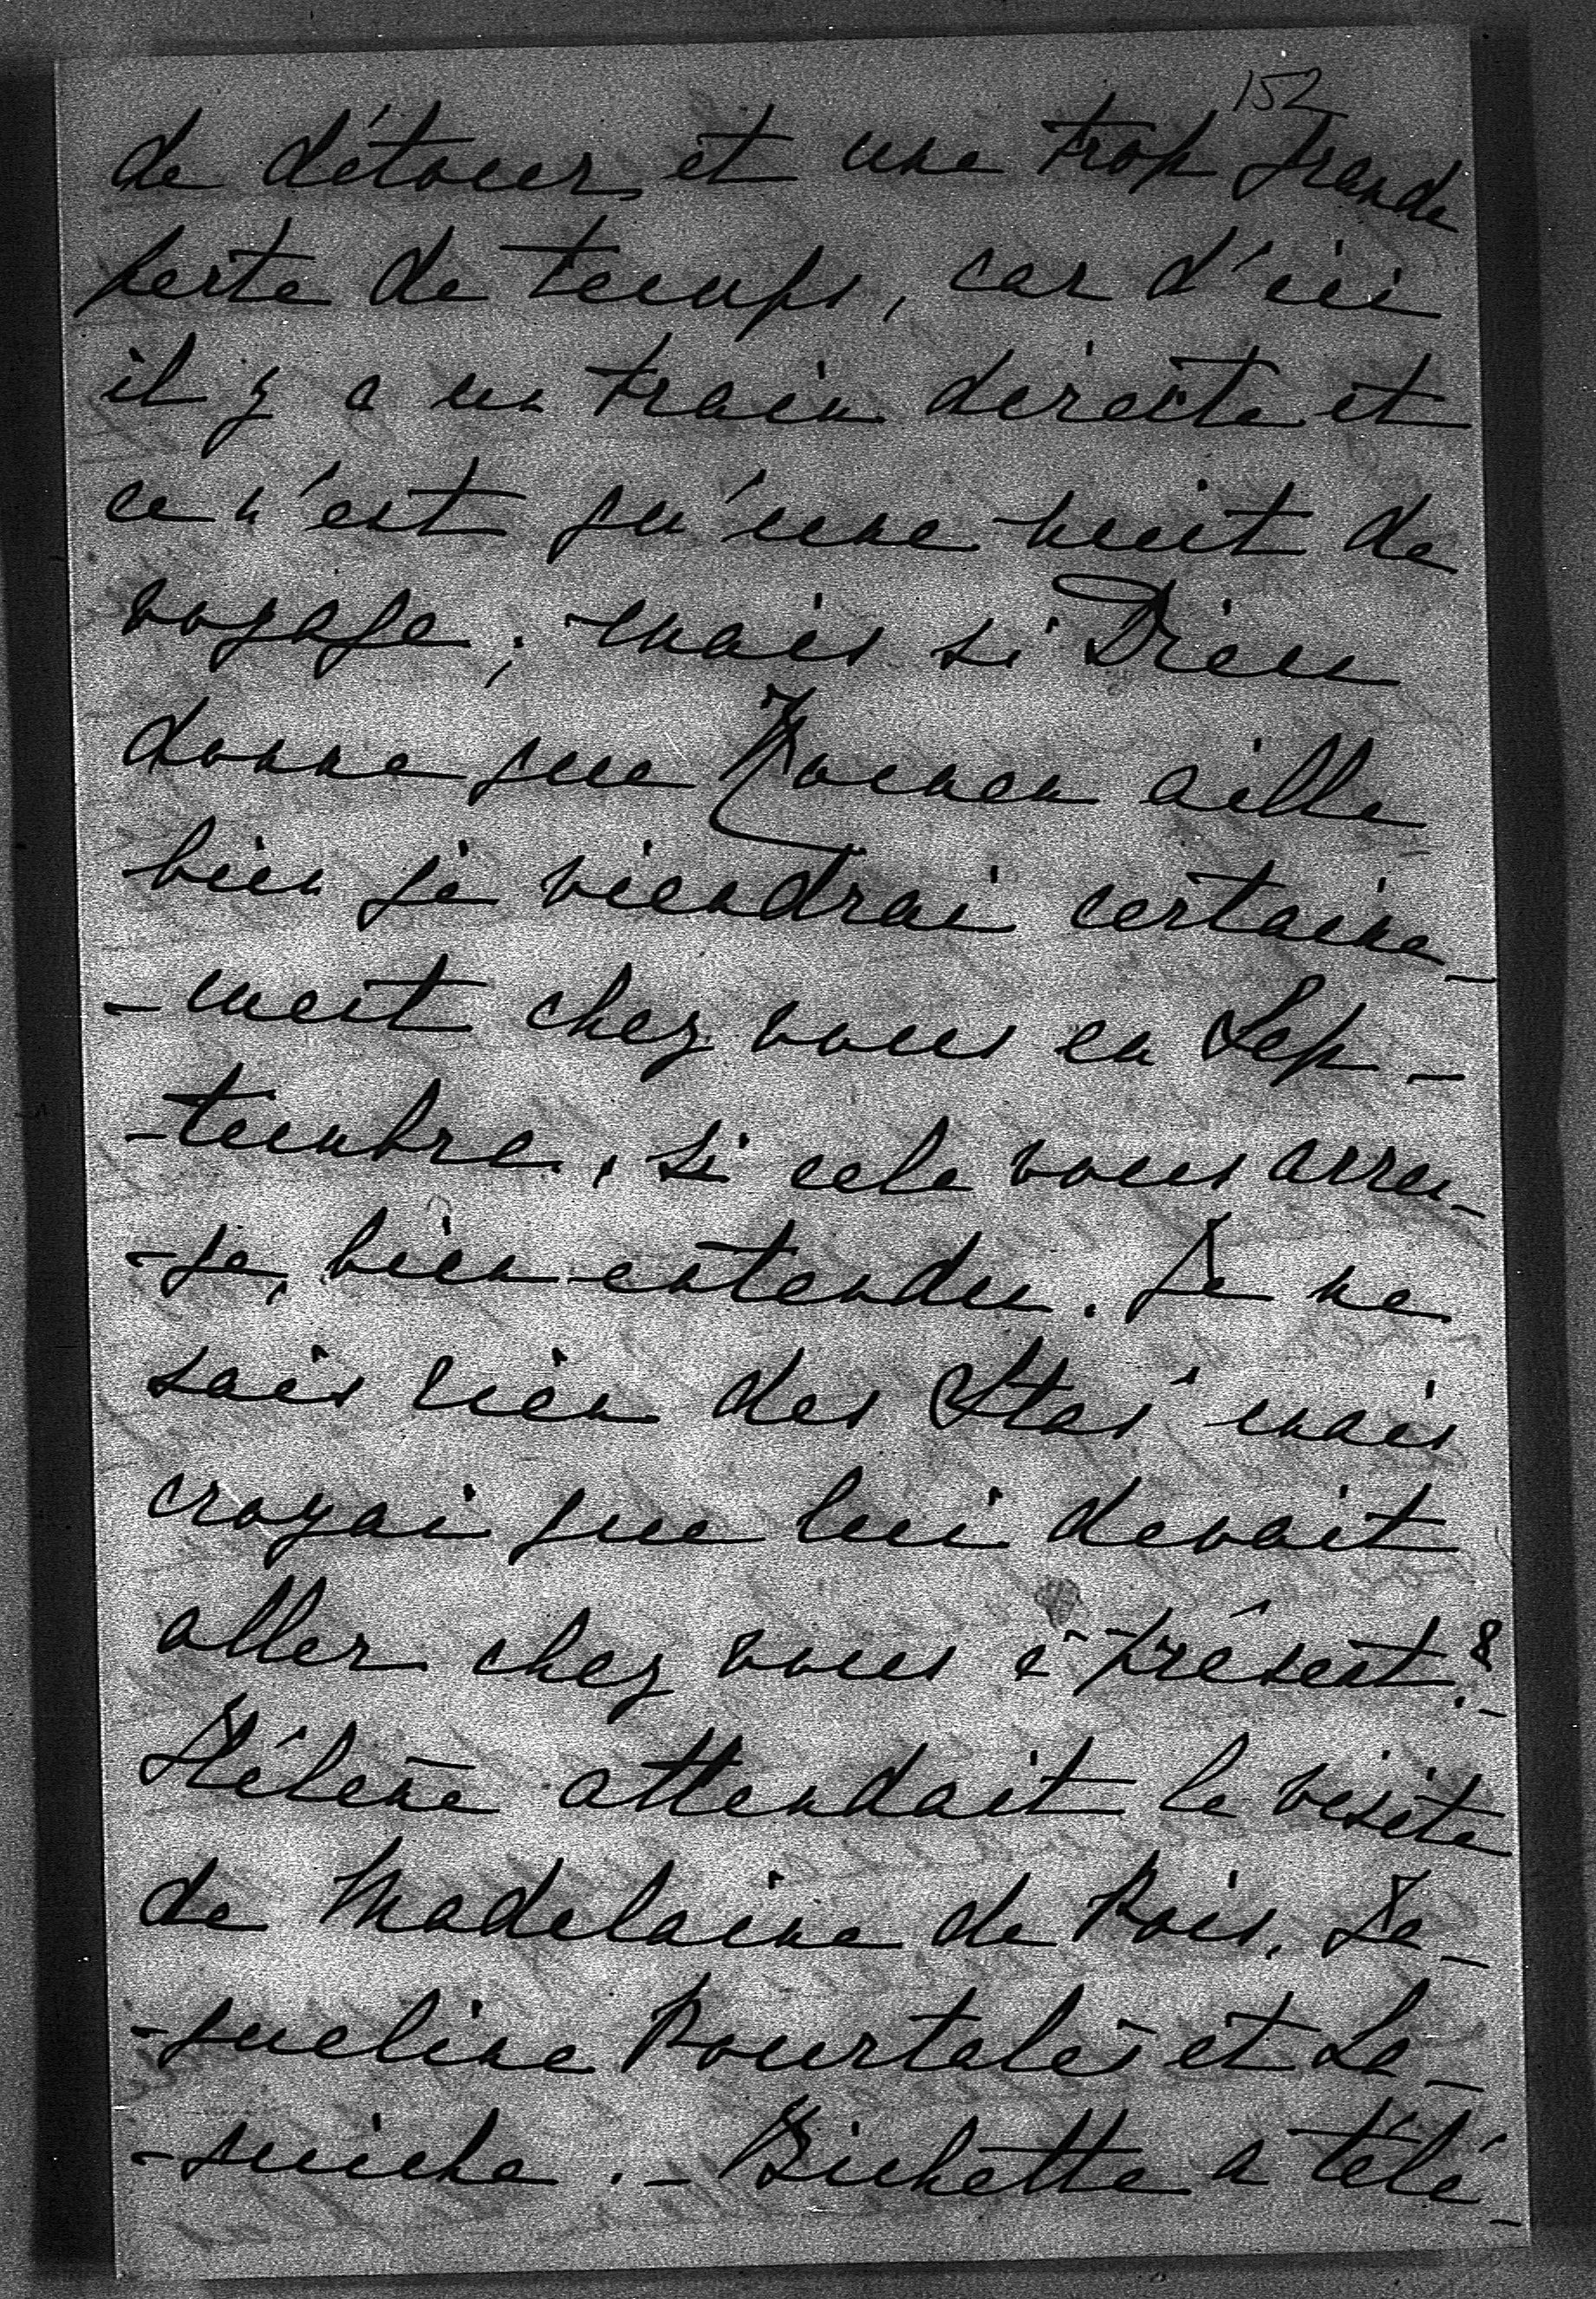 152
de détour, et une trop grande
perte de temps, car d'ici
il y a un train directe et
ce n'est qu'une nuit de
voyage; mais si Dieu
donne que aille
bien je viendrai certaine-
-ment chez vous en Sep-
-tembre, si cela vous arran-
-ge, bien-entendu. Je ne
sais rien des Stas' mais
croyai que lui devait
aller chez vous à présent?-
Hélène attendait la visite
de Madelaine de Pois, Ja-
-queline Pourtalès et La-
. - Bichette a télé-